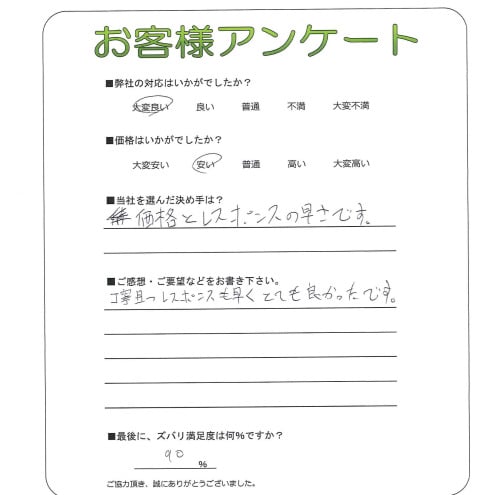 お客様アンケート
■弊社の対応はいかがでしたか?
大変良い 良い 普通 不満 大変不満
■価格はいかがでしたか?
大変安い 安い 普通 高い 大変高い
■当社を選んだ決め手は?
価格とレスポンスの早さです。
■ご感想・ご要望などをお書き下さい。
丁寧且つレスポンスも早くとても良かったです。
■最後に、ズバリ満足度は何%ですか?
90 %
ご協力頂き、誠にありがとうございました。